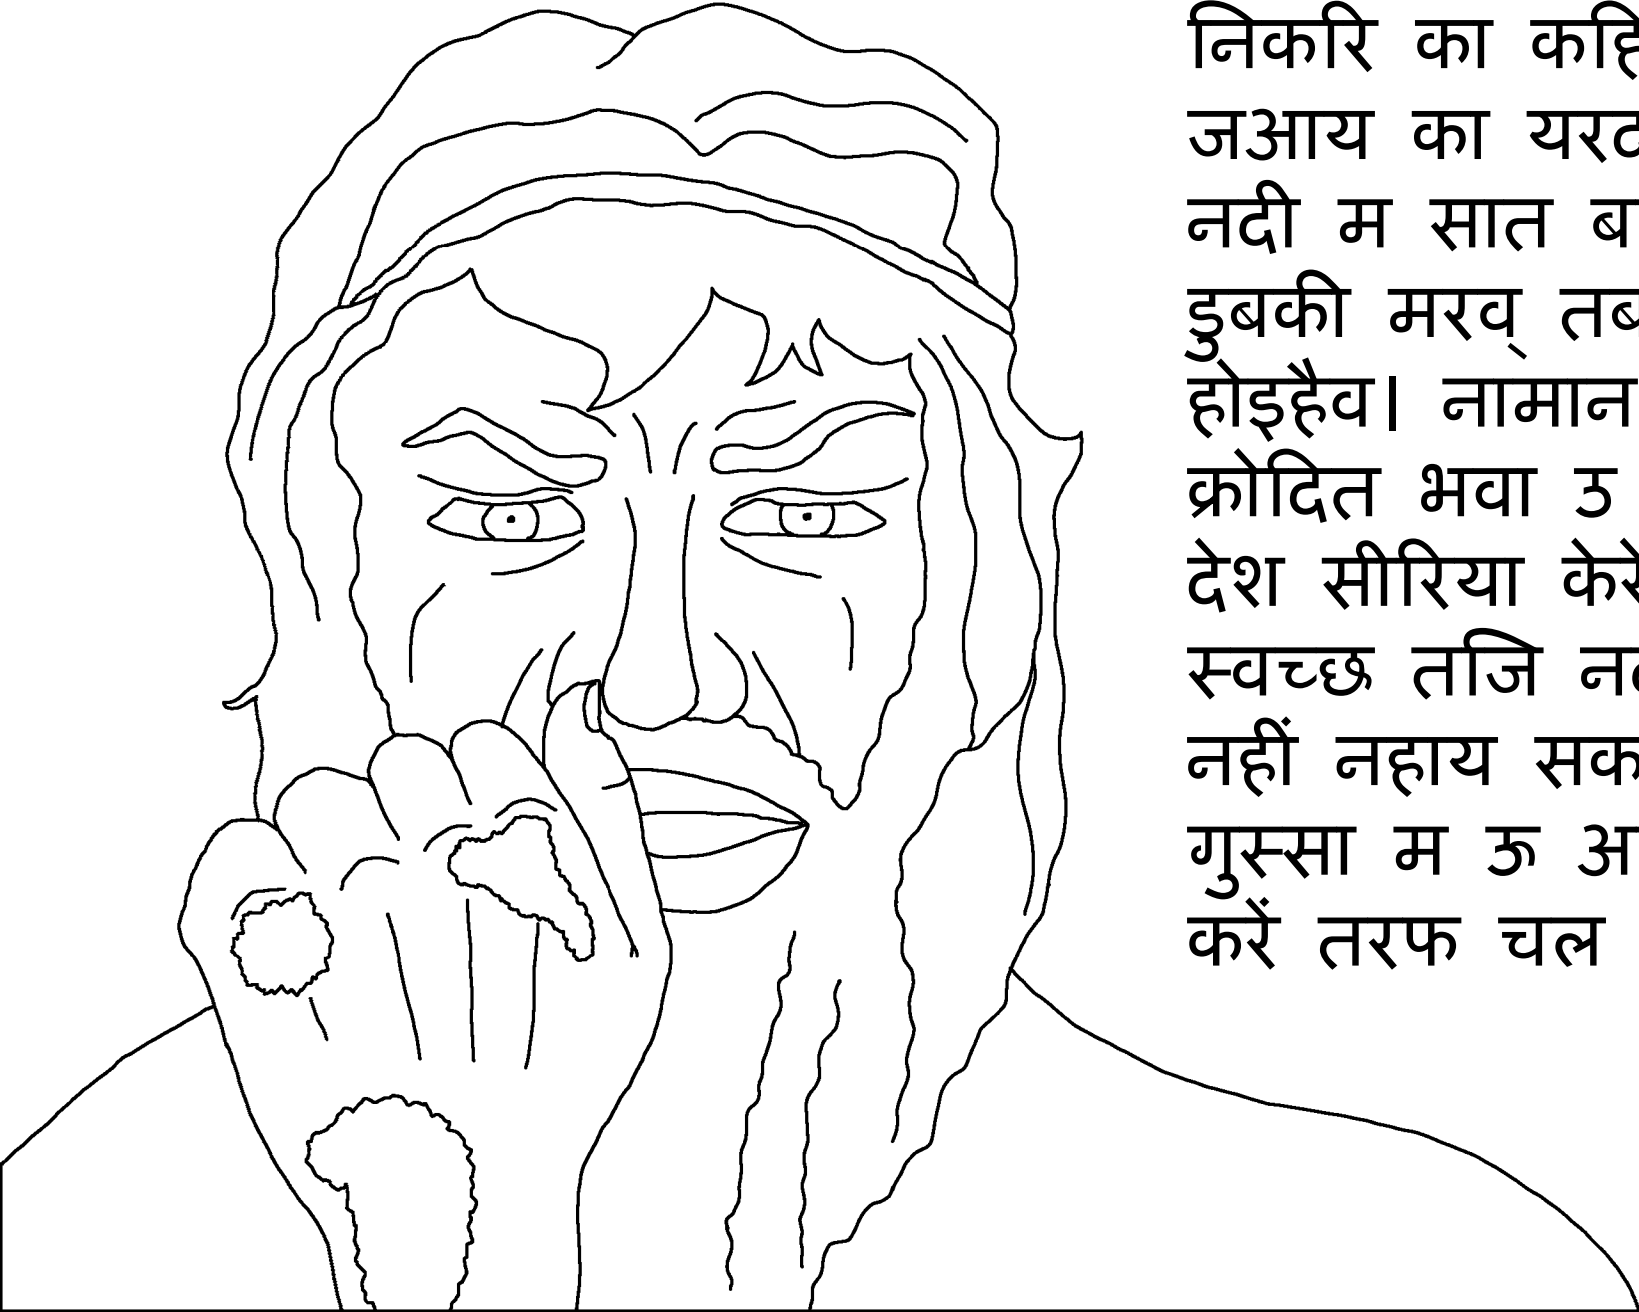 निकरि का
जआय का
नदी म सात
डुबकी मरव्
होइहैव। नामान
क्रोदित भवा उ
देश सीरिया
स्वच्छ तजि
नहीं नहाय
गुस्सा म ऊ
करें तरफ चल